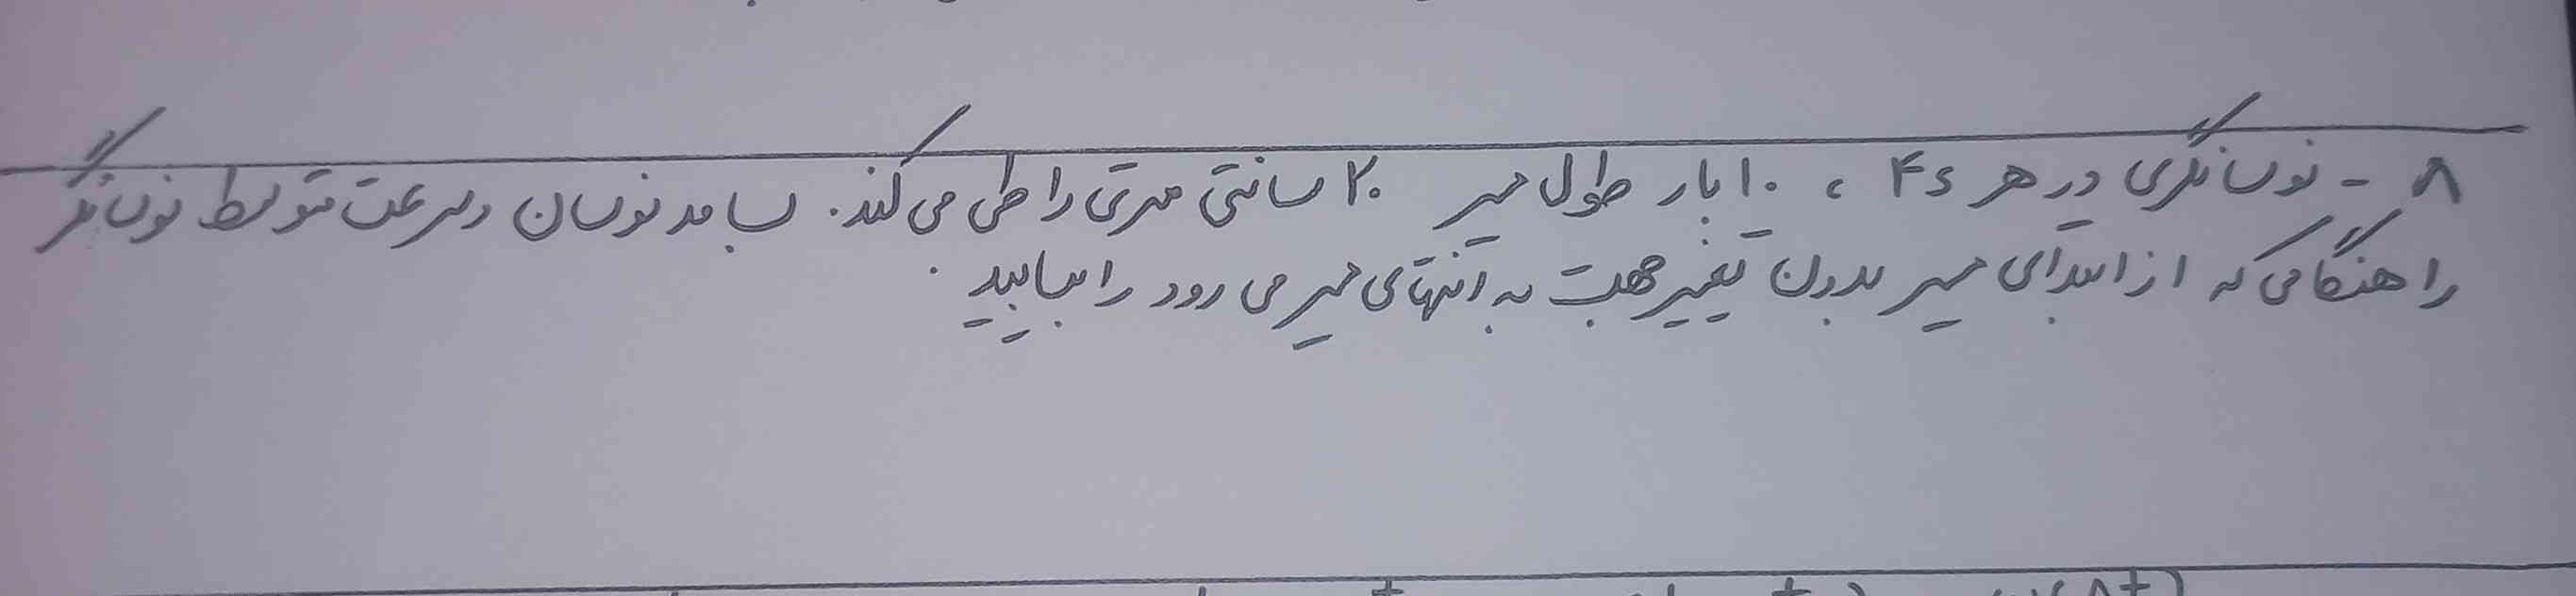 ۸ - نوسانگری در هر ۴s ، ۱۰ بار طول مسیر ۲۰ سانتی متری را طی می کند. بسامد نوسان و سرعت متوسط نوسانگر
را هنگامی که از ابتدای مسیر بدون تغییر جهت به انتهای مسیر می رود را بیابید.